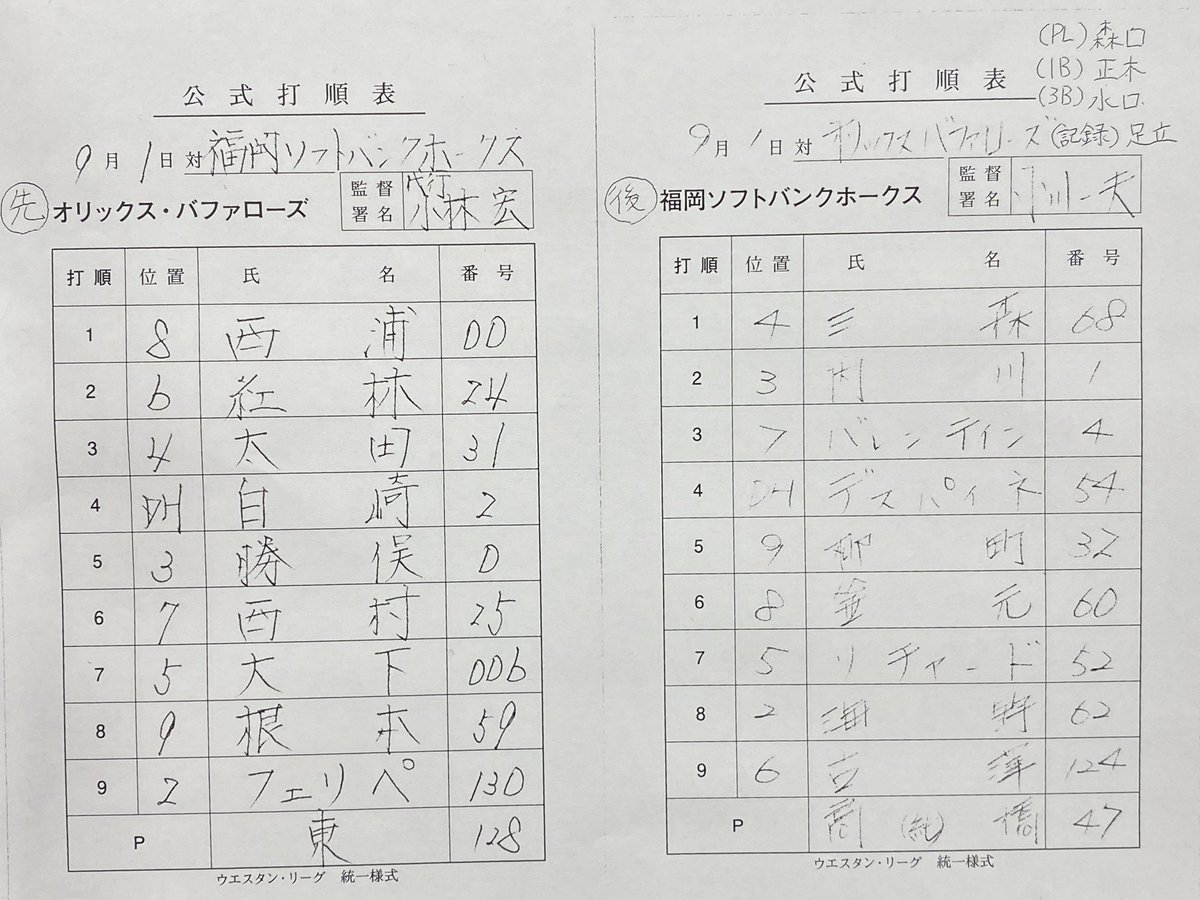 公式打順表
9月1日対福岡ソフトバンクホークス
先 オリックス・バファローズ 監督署名 代行 小林宏
打順 位置 氏名 番号
1 8 西浦 00
2 6 紅林 24
3 4 太田 31
4 DH 白崎 2
5 3 勝俣 0
6 7 西村 25
7 5 大下 006
8 9 根本 59
9 2 フェリペ 130
P 東 128
ウエスタン・リーグ 統一様式
(PL) 森口
(1B) 正木
(3B) 水口
(記録) 足立
公式打順表
9月1日対オリックスバファローズ
後 福岡ソフトバンクホークス 監督署名 小川一夫
打順 位置 氏名 番号
1 4 三森 68
2 3 内川 1
3 7 バレンティン 4
4 DH デスパイネ 54
5 9 柳町 32
6 8 釜元 60
7 5 リチャード 52
8 2 海野 62
9 6 古澤 124
P 高(純)橋 47
ウエスタン・リーグ 統一様式